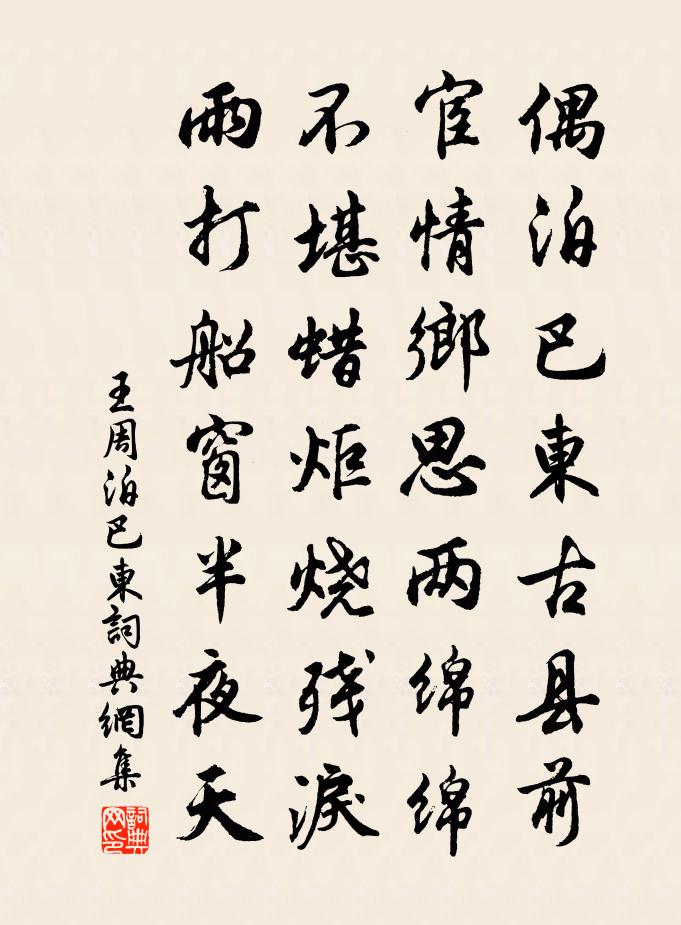 偶泊巴東古县前
宦情鄉思两绵绵
不堪蜡炬烧残淚
雨打船窗半夜天
王周泊巴東詞典網集
詞典網印